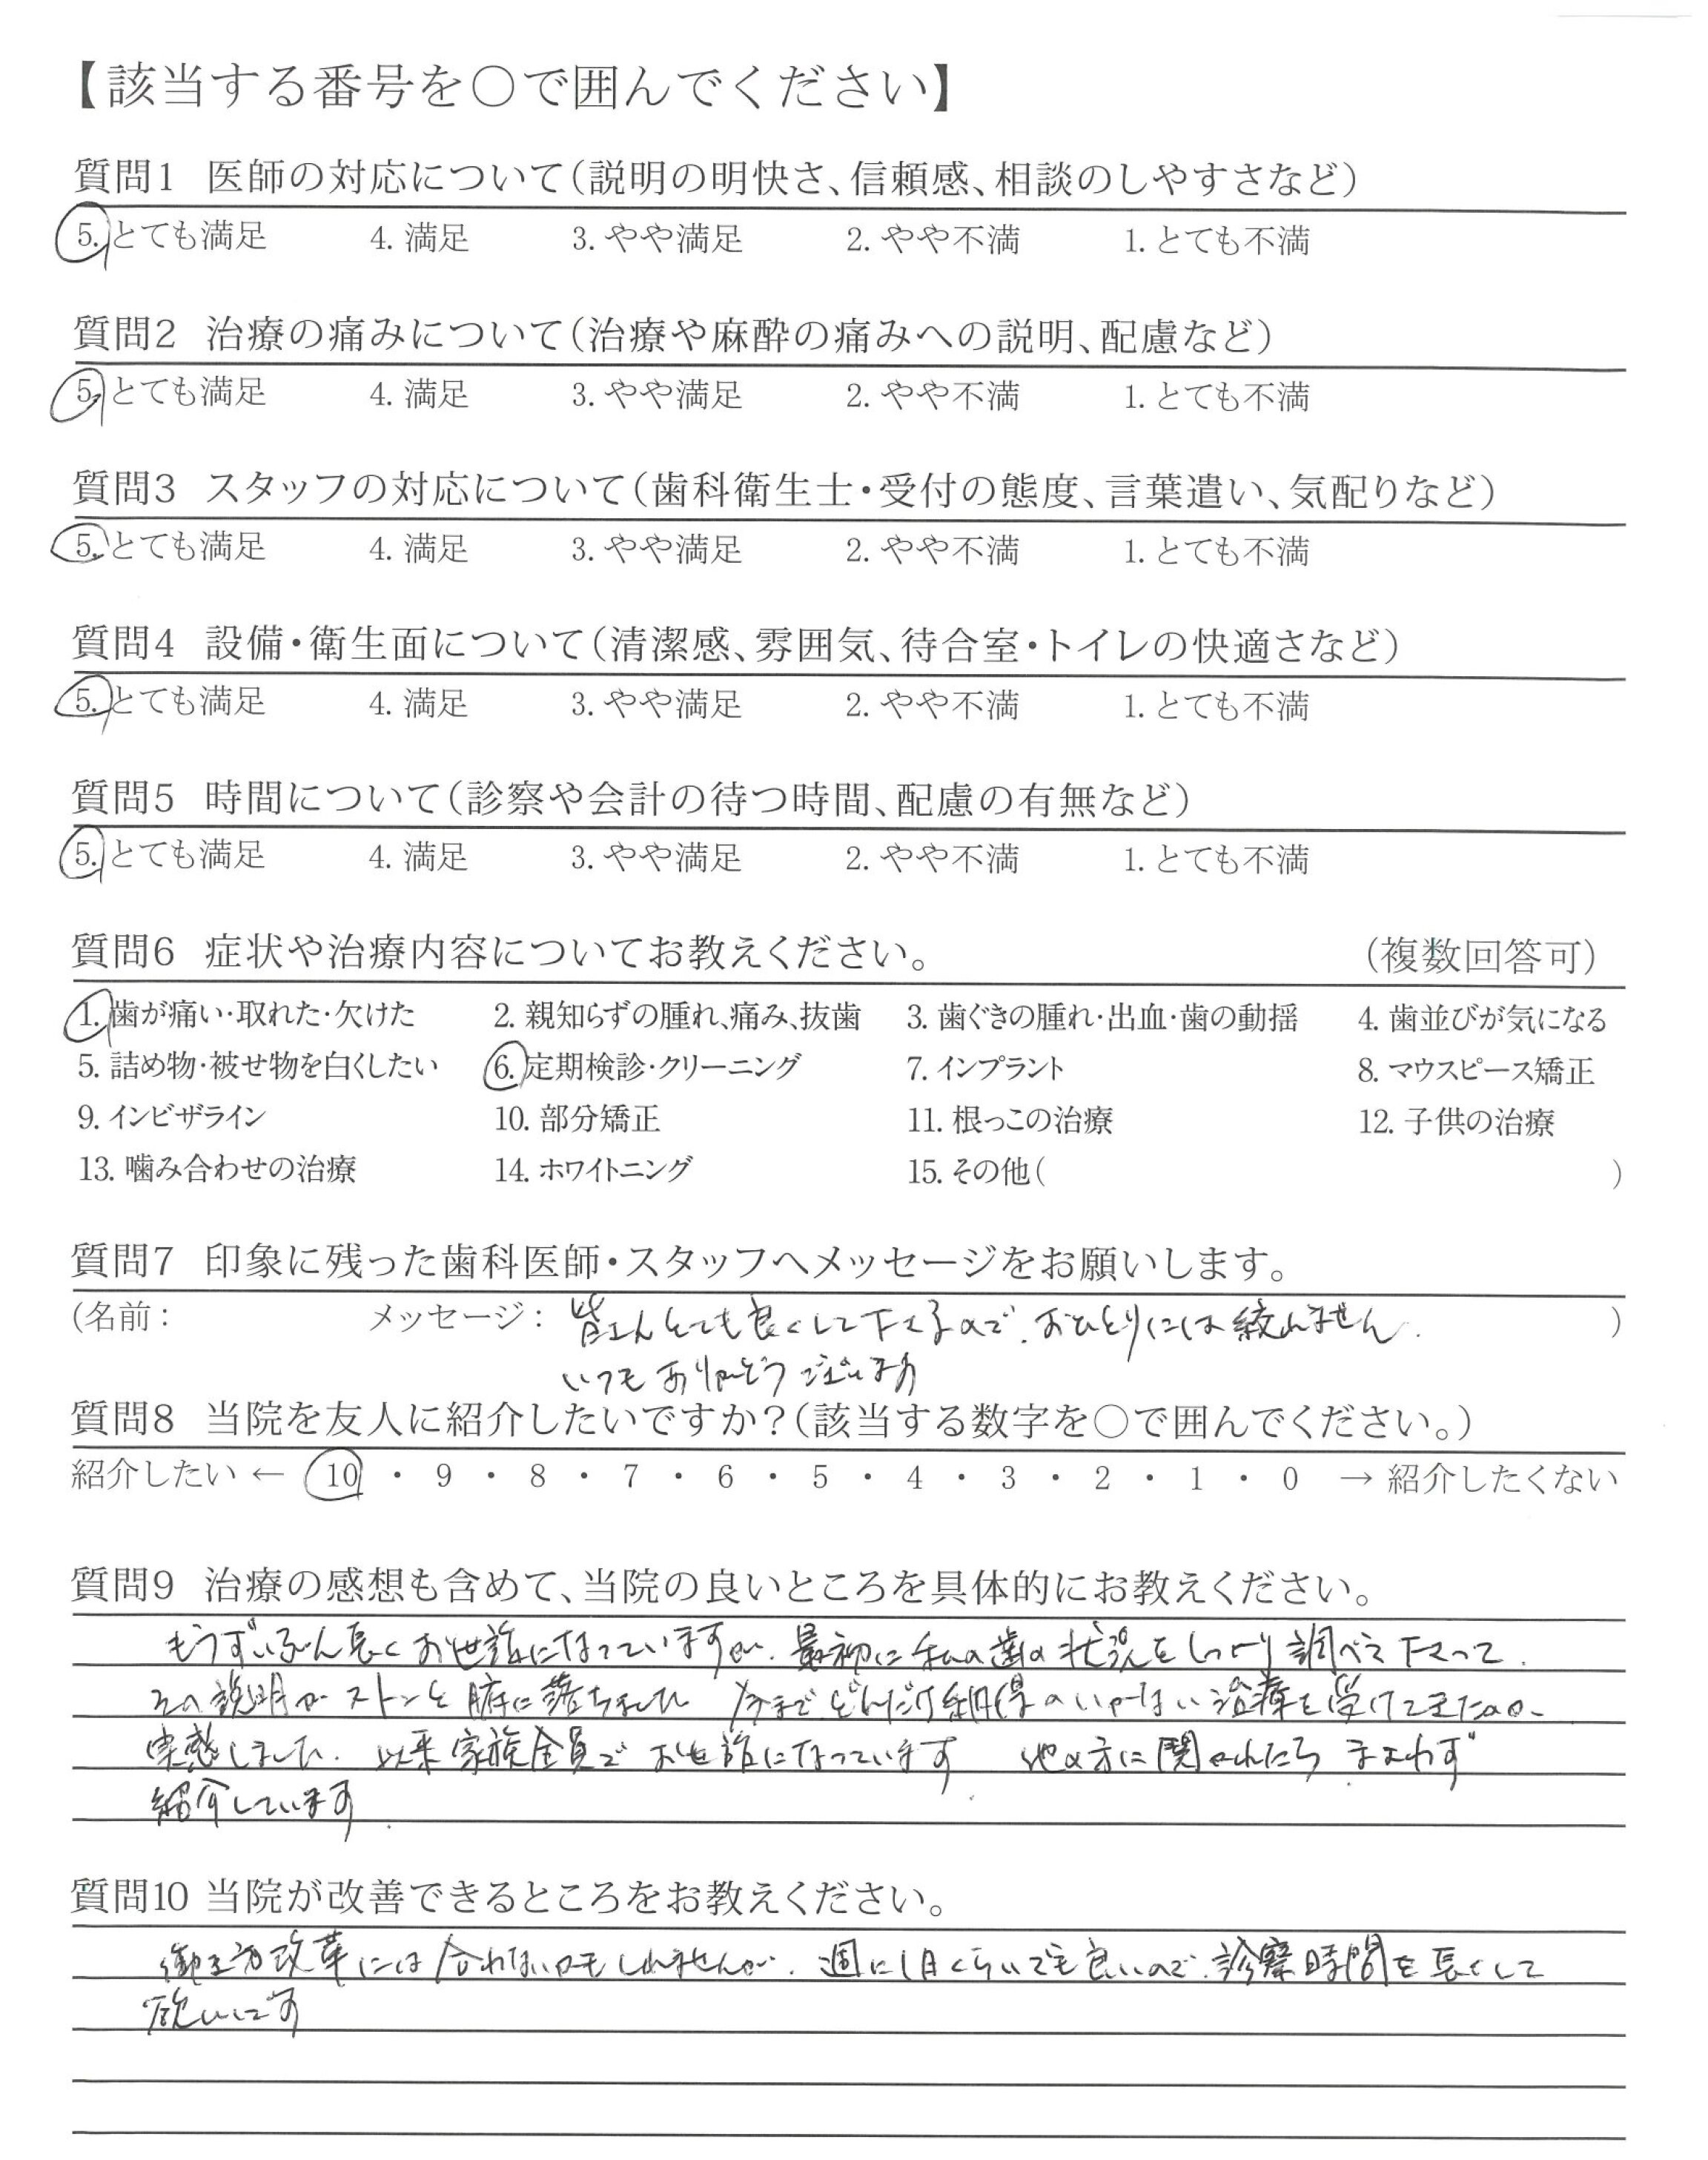 【該当する番号を○で囲んでください】
質問1 医師の対応について(説明の明快さ、信頼感、相談のしやすさなど)
5. とても満足 4. 満足 3. やや満足 2. やや不満 1. とても不満
質問2 治療の痛みについて(治療や麻酔の痛みへの説明、配慮など)
5. とても満足 4. 満足 3. やや満足 2. やや不満 1. とても不満
質問3 スタッフの対応について(歯科衛生士・受付の態度、言葉遣い、気配りなど)
5. とても満足 4. 満足 3. やや満足 2. やや不満 1. とても不満
質問4 設備・衛生面について(清潔感、雰囲気、待合室・トイレの快適さなど)
5. とても満足 4. 満足 3. やや満足 2. やや不満 1. とても不満
質問5 時間について(診察や会計の待つ時間、配慮の有無など)
5. とても満足 4. 満足 3. やや満足 2. やや不満 1. とても不満
質問6 症状や治療内容についてお教えください。 (複数回答可)
1. 歯が痛い・取れた・欠けた 2. 親知らずの腫れ、痛み、抜歯 3. 歯ぐきの腫れ・出血・歯の動揺 4. 歯並びが気になる
5. 詰め物・被せ物を白くしたい 6. 定期検診・クリーニング 7. インプラント 8. マウスピース矯正
9. インビザライン 10. 部分矯正 11. 根っこの治療 12. 子供の治療
13. 噛み合わせの治療 14. ホワイトニング 15. その他( )
質問7 印象に残った歯科医師・スタッフへメッセージをお願いします。
(名前: メッセージ: 皆さんとても良くして下さるので、おひとりには絞れません. )
いつもありがとうございます
質問8 当院を友人に紹介したいですか?(該当する数字を○で囲んでください。)
紹介したい ← 10 ・ 9 ・ 8 ・ 7 ・ 6 ・ 5 ・ 4 ・ 3 ・ 2 ・ 1 ・ 0 → 紹介したくない
質問9 治療の感想も含めて、当院の良いところを具体的にお教えください。
もうずいぶん長くお世話になっていますが、最初に私の歯の状況をしっかり調べて下さって、
その説明がストンと腑に落ちました 今までどんだけ納得のいかない治療を受けてきたのか、
実感しました. 以来家族全員でお世話になっています 他の方に聞かれたら まよわず
紹介しています.
質問10 当院が改善できるところをお教えください。
働き方改革には合わないかもしれませんが、週に1日くらいでも良いので、診察時間を長くして
欲しいです